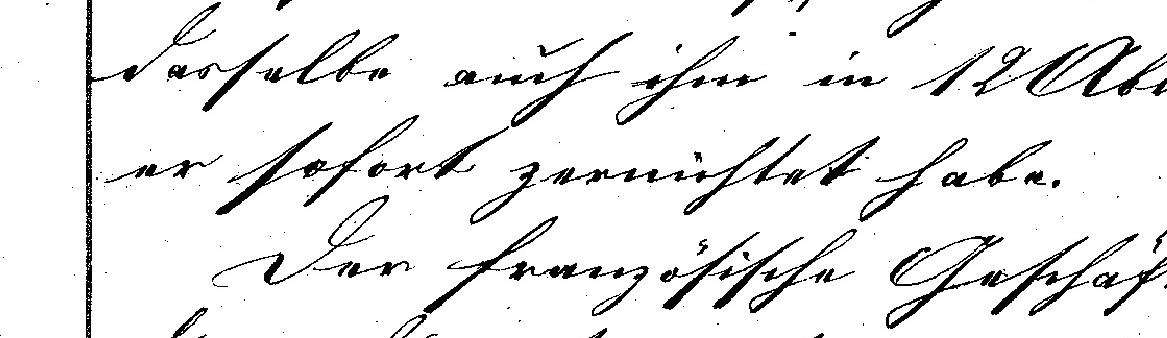 dasselbe auch ihm in 12
er sofort zernichtet habe.
Der französische